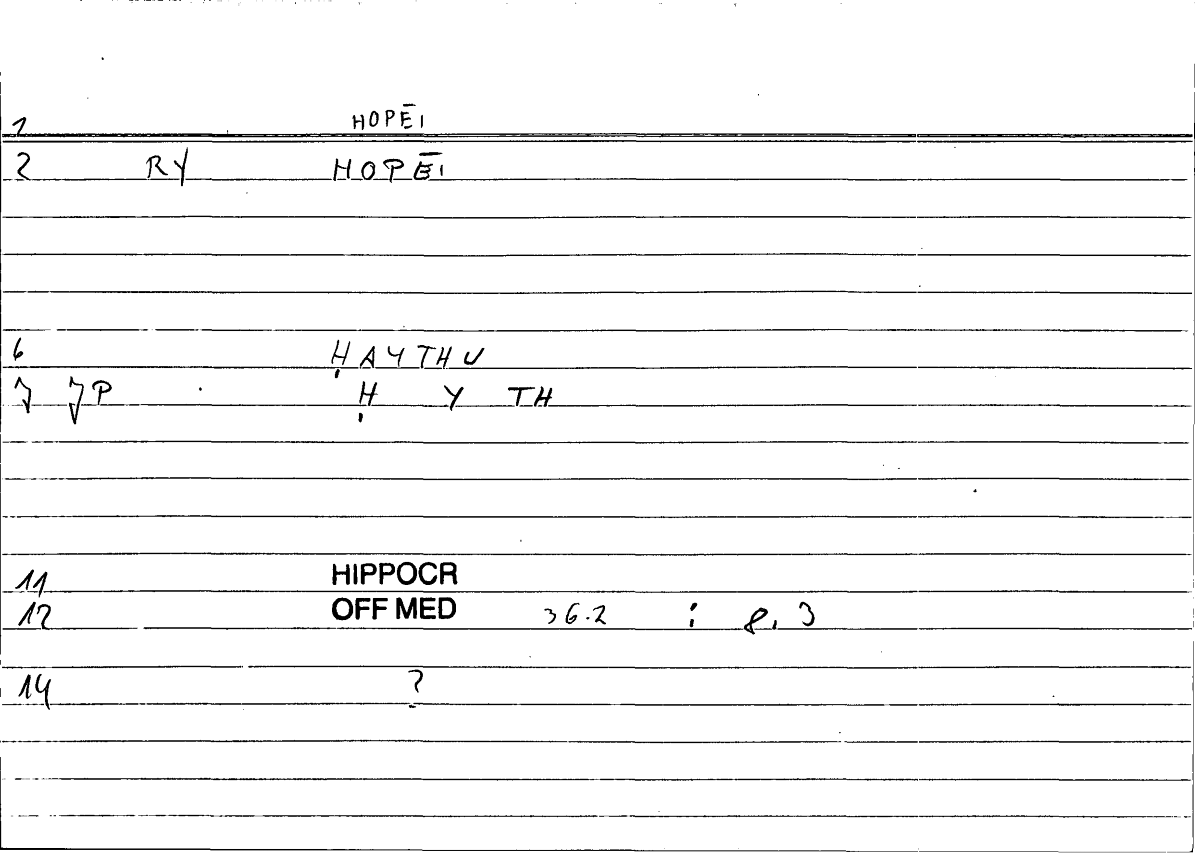 1 HOPĒI
2 RY HOPĒI
6 ḤAYTHU
7 JP Ḥ Y TH
11 HIPPOCR
12 OFF MED 36.2 : 8,3
14 ?